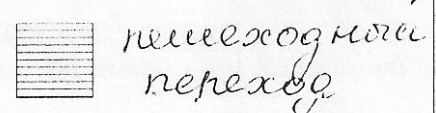 пешеходный
переход